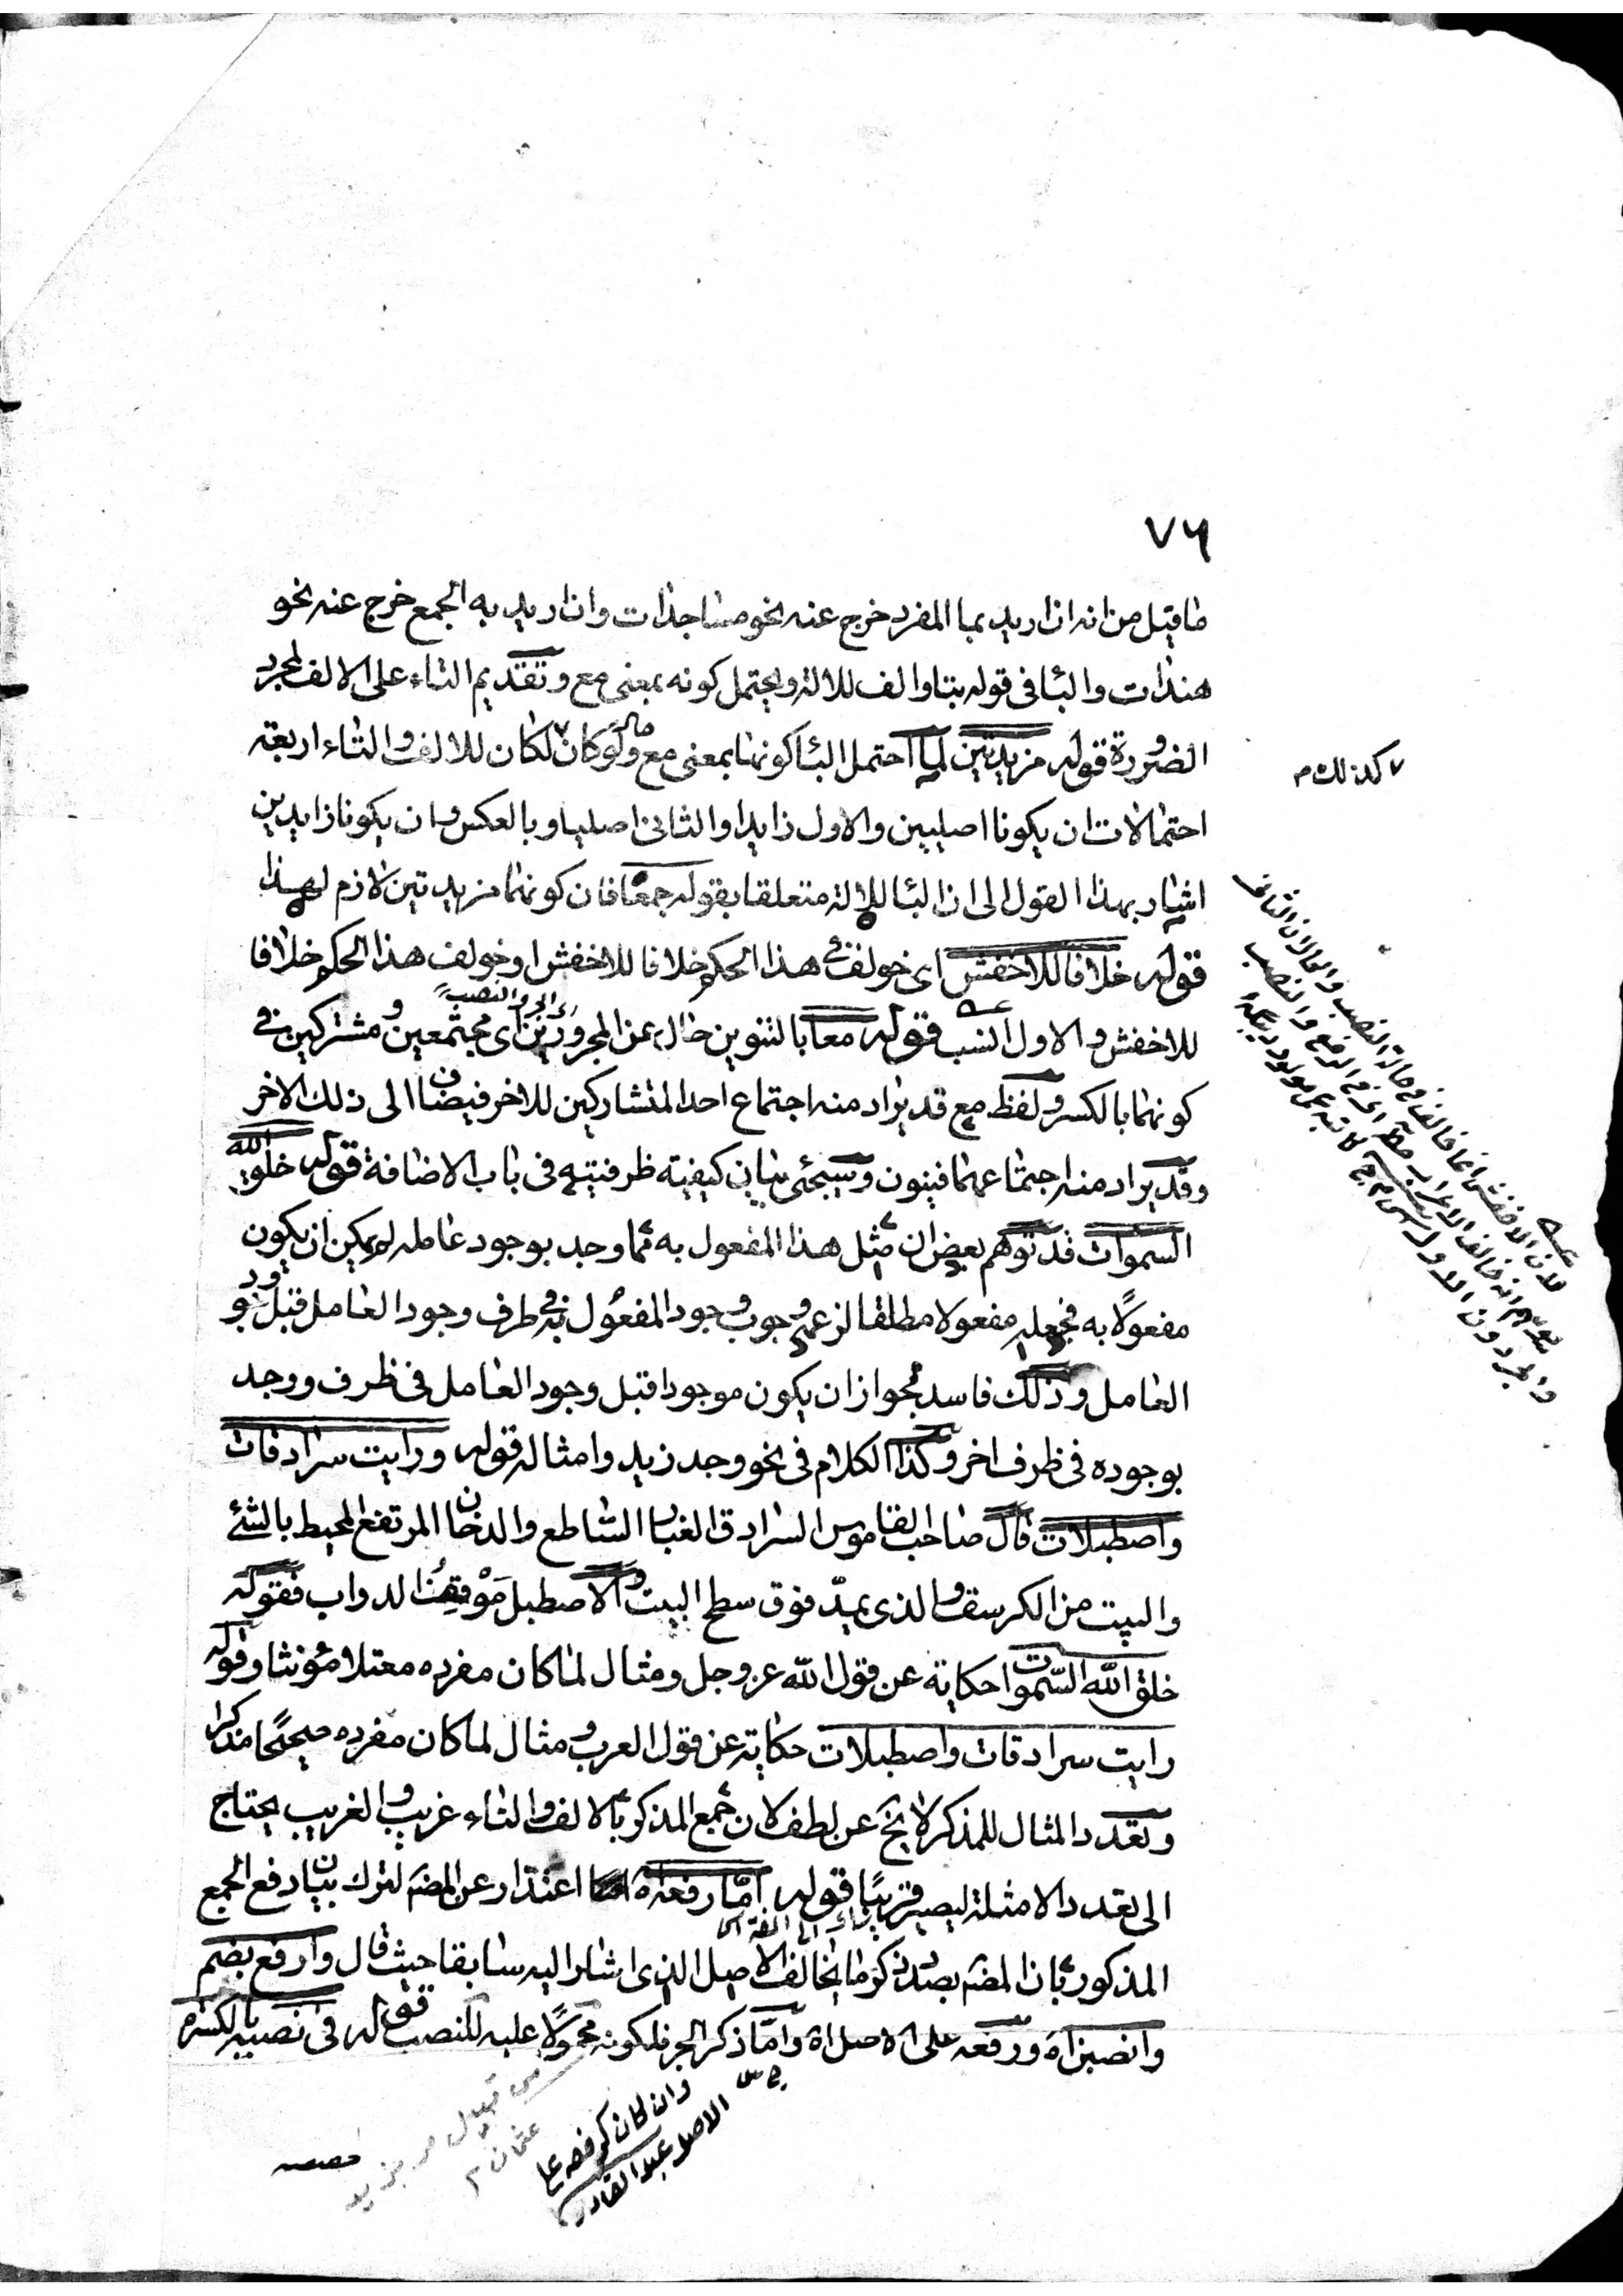 ٧٦
ما قيل من انه ان اريد بما المفرد خرج عنه نحو مساجدات وان اريد به الجمع خرج عنه نحو
هندات والبا في قوله بتا والف للالة ويحتمل كونه بمعنى مع وتقديم التاء على الالف لمجرد
الضرورة قوله مزيدتين لما احتمل البا كونها بمعنى مع ولو كان لكان للالف والتاء اربعة
كذلك م
احتمالات ان يكونا اصليين والاول زايدا والثاني اصليا وبالعكس وان يكونا زايدين
اشار بهذا القول الى ان البا للالة متعلقا بقوله جمعا فان كونهما مزيدتين لازم لهذا
قوله خلافا للاخفش اى خولف في هذا الحكم خلافا للاخفش او خولف هذا الحكم خلافا
للاخفش والاول انسب قوله معا بالتنوين حال عن المجرورين اى مجتمعين ومشتركين في
اى الجر والنصب
كونهما بالكسر ولفظ مع قد يراد منه اجتماع احد المتشاركين للاخر فيضاف الى ذلك الاخر
وقد يراد منه اجتماعهما فينون وسيجئ بيان كيفية ظرفيته في باب الاضافة قوله خلق الله
السموات قد توهم بعض ان مثل هذا المفعول به مما وجد بوجود عامله لم يمكن ان يكون
مفعولا به فجعله مفعولا مطلقا لزعمه وجوب وجود المفعول به في ظرف وجود العامل قبل وجود
العامل وذلك فاسد لجواز ان يكون موجودا قبل وجود العامل في ظرف ووجد
بوجوده في ظرف اخر وكذا الكلام في نحو وجد زيد وامثاله قوله ورايت سرادقات
واصطبلات قال صاحب القاموس السرادق الغبار الساطع والدخان المرتفع المحيط بالشئ
والبيت من الكرسف والذى يمد فوق سطح البيت والاصطبل موقف الدواب فقوله
خلق الله السموات حكاية عن قول الله عز وجل ومثال لما كان مفرده معتلا مؤنثا وقوله
رايت سرادقات واصطبلات حكاية عن قول العرب ومثال لما كان مفرده صحيحا مذكرا
وتعدد المثال للمذكر لا يخ عن لطف لان جمع المذكر بالالف والتاء غريب والغريب يحتاج
الى تعدد الامثلة ليصير قريبا قوله اما رفعه اه اعتذار عن المصنف لترك بيان رفع الجمع
المذكور بان المصنف بصدد ذكر ما يخالف الاصل الذى اشار اليه سابقا حيث قال وارفع بضم
وانصبن اه ورفعه على الاصل اه واما ذكر الجر فلكونه محمولا عليه للنصب قوله في نصبه بالكسره
لان الاخفش انما خالف في حالة النصب والحال ان الشارح
وان كان كرفعه على
الاصل عبد القادر